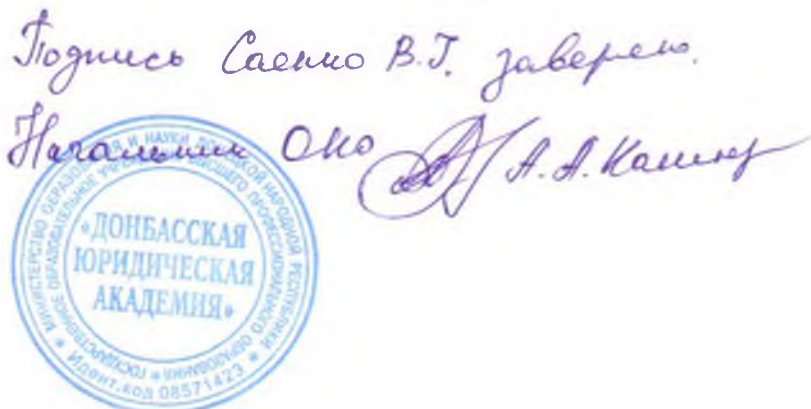 Подпись Саенко В.Г. заверено.
Начальник ОКО А.А.
МИНИСТЕРСТВО ОБРАЗОВАНИЯ И НАУКИ ДОНЕЦКОЙ НАРОДНОЙ РЕСПУБЛИКИ
ГОСУДАРСТВЕННОЕ ОБРАЗОВАТЕЛЬНОЕ УЧРЕЖДЕНИЕ ВЫСШЕГО ПРОФЕССИОНАЛЬНОГО ОБРАЗОВАНИЯ
«ДОНБАССКАЯ
ЮРИДИЧЕСКАЯ
АКАДЕМИЯ»
Идент.код 08571423